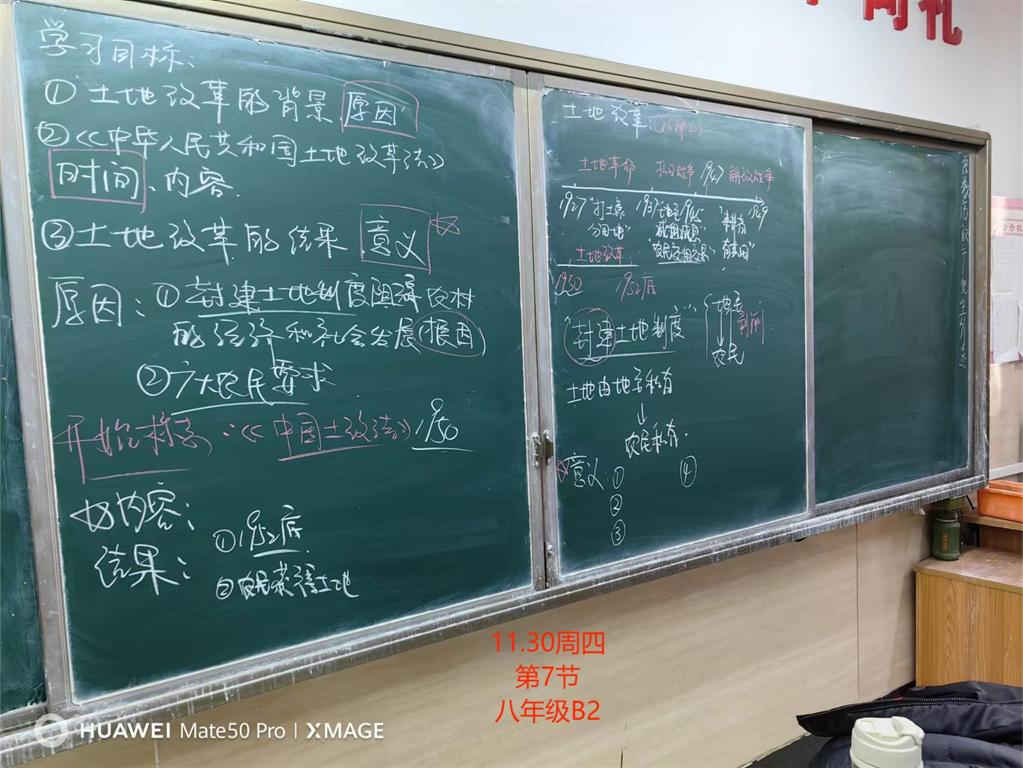 学习目标：
①土地改革的背景 原因
②《中华人民共和国土地改革法》
时间、内容
③土地改革的结果 意义
原因：①封建土地制度阻碍农村
的经济和社会发展(根因)
②广大农民要求
开始标志：《中国土改法》1950
内容：
结果：①1952底
②农民获得土地
土地改革：
土地革命 抗日战争 1947 解放战争
1927 1937 1945 1949
"打土豪
分田地"
"地主
减租减息
农民交租交息"
"耕者
有其田"
土地改革
1950 1952底
"封建土地制度"
地主
剥削
↓
农民
土地由地主私有
↓
农民私有
意义 ① ④
②
③
11.30周四
第7节
八年级B2
HUAWEI Mate50 Pro | XMAGE